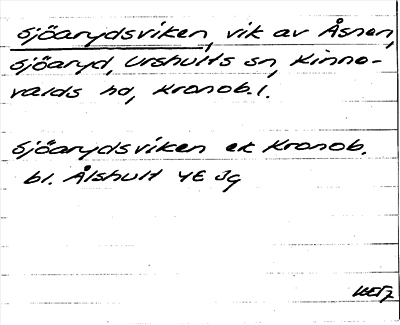 Sjöarydsviken, vik av Åsnen,
Sjöaryd, Urshults sn, Kinne-
valds hd, Kronob.l.
Sjöarydsviken ek Kronob.
bl. Älshult 4E Jg